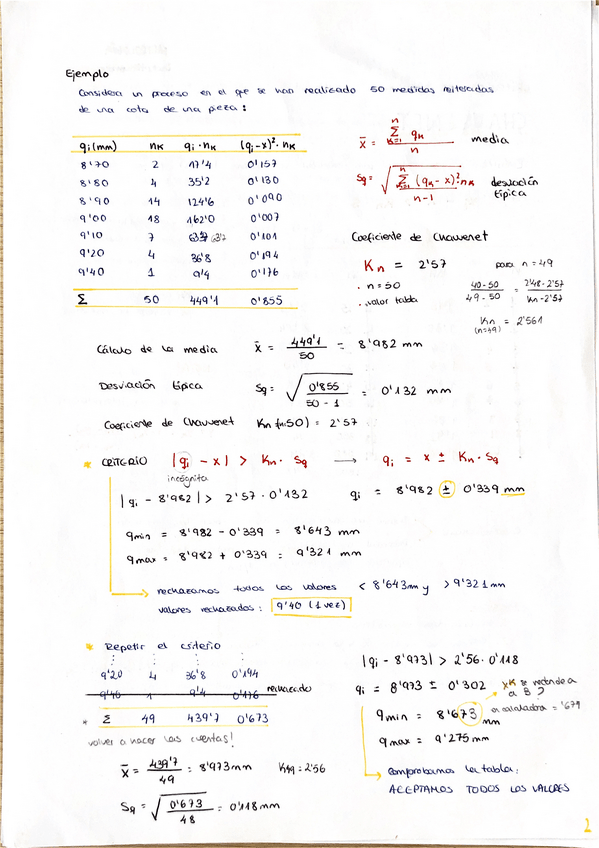 Ejemplo
Considera un proceso en el que se han realizado 50 medidas reiteradas
de una cota de una pieza:
qi (mm) nK qi · nK (qi - x)² · nK
8'70 2 17'4 0'157
8'80 4 35'2 0'130
8'90 14 124'6 0'090
9'00 18 162'0 0'007
9'10 7 63'7 0'101
9'20 4 36'8 0'194
9'40 1 9'4 0'176
Σ 50 449'1 0'855
x̄ = Σ qK / n media
Sq = √( Σ (qK - x)² · nK / n-1 ) desviación
típica
Coeficiente de Chauvenet
Kn = 2'57 para n = 49
· n = 50
· valor tabla
40 - 50 / 49 - 50 = 2'48 - 2'57 / Kn - 2'57
Kn = 2'561
(n=49)
Cálculo de la media x̄ = 449'1 / 50 = 8'982 mm
Desviación típica Sq = √( 0'855 / 50 - 1 ) = 0'132 mm
Coeficiente de Chauvenet Kn (n=50) = 2'57
* CRITERIO |qi - x| > Kn · Sq → qi = x ± Kn · Sq
incógnita
|qi - 8'982| > 2'57 · 0'132 qi = 8'982 ± 0'339 mm
qmin = 8'982 - 0'339 = 8'643 mm
qmax = 8'982 + 0'339 = 9'321 mm
rechazamos todos los valores < 8'643mm y > 9'321mm
valores rechazados: 9'40 (1 vez)
* Repetir el criterio
9'20 4 36'8 0'194
9'40 1 9'4 0'176 rechazado
* Σ 49 439'7 0'673
volver a hacer las cuentas!
x̄ = 439'7 / 49 = 8'973mm K49 = 2'56
Sq = √( 0'673 / 48 ) = 0'118mm
|qi - 8'973| > 2'56 · 0'118
qi = 8'973 ± 0'302
se redondea
a 3?
qmin = 8'673 mm
en calculadora = '679
qmax = 9'275 mm
comprobamos la tabla:
ACEPTAMOS TODOS LOS VALORES
2